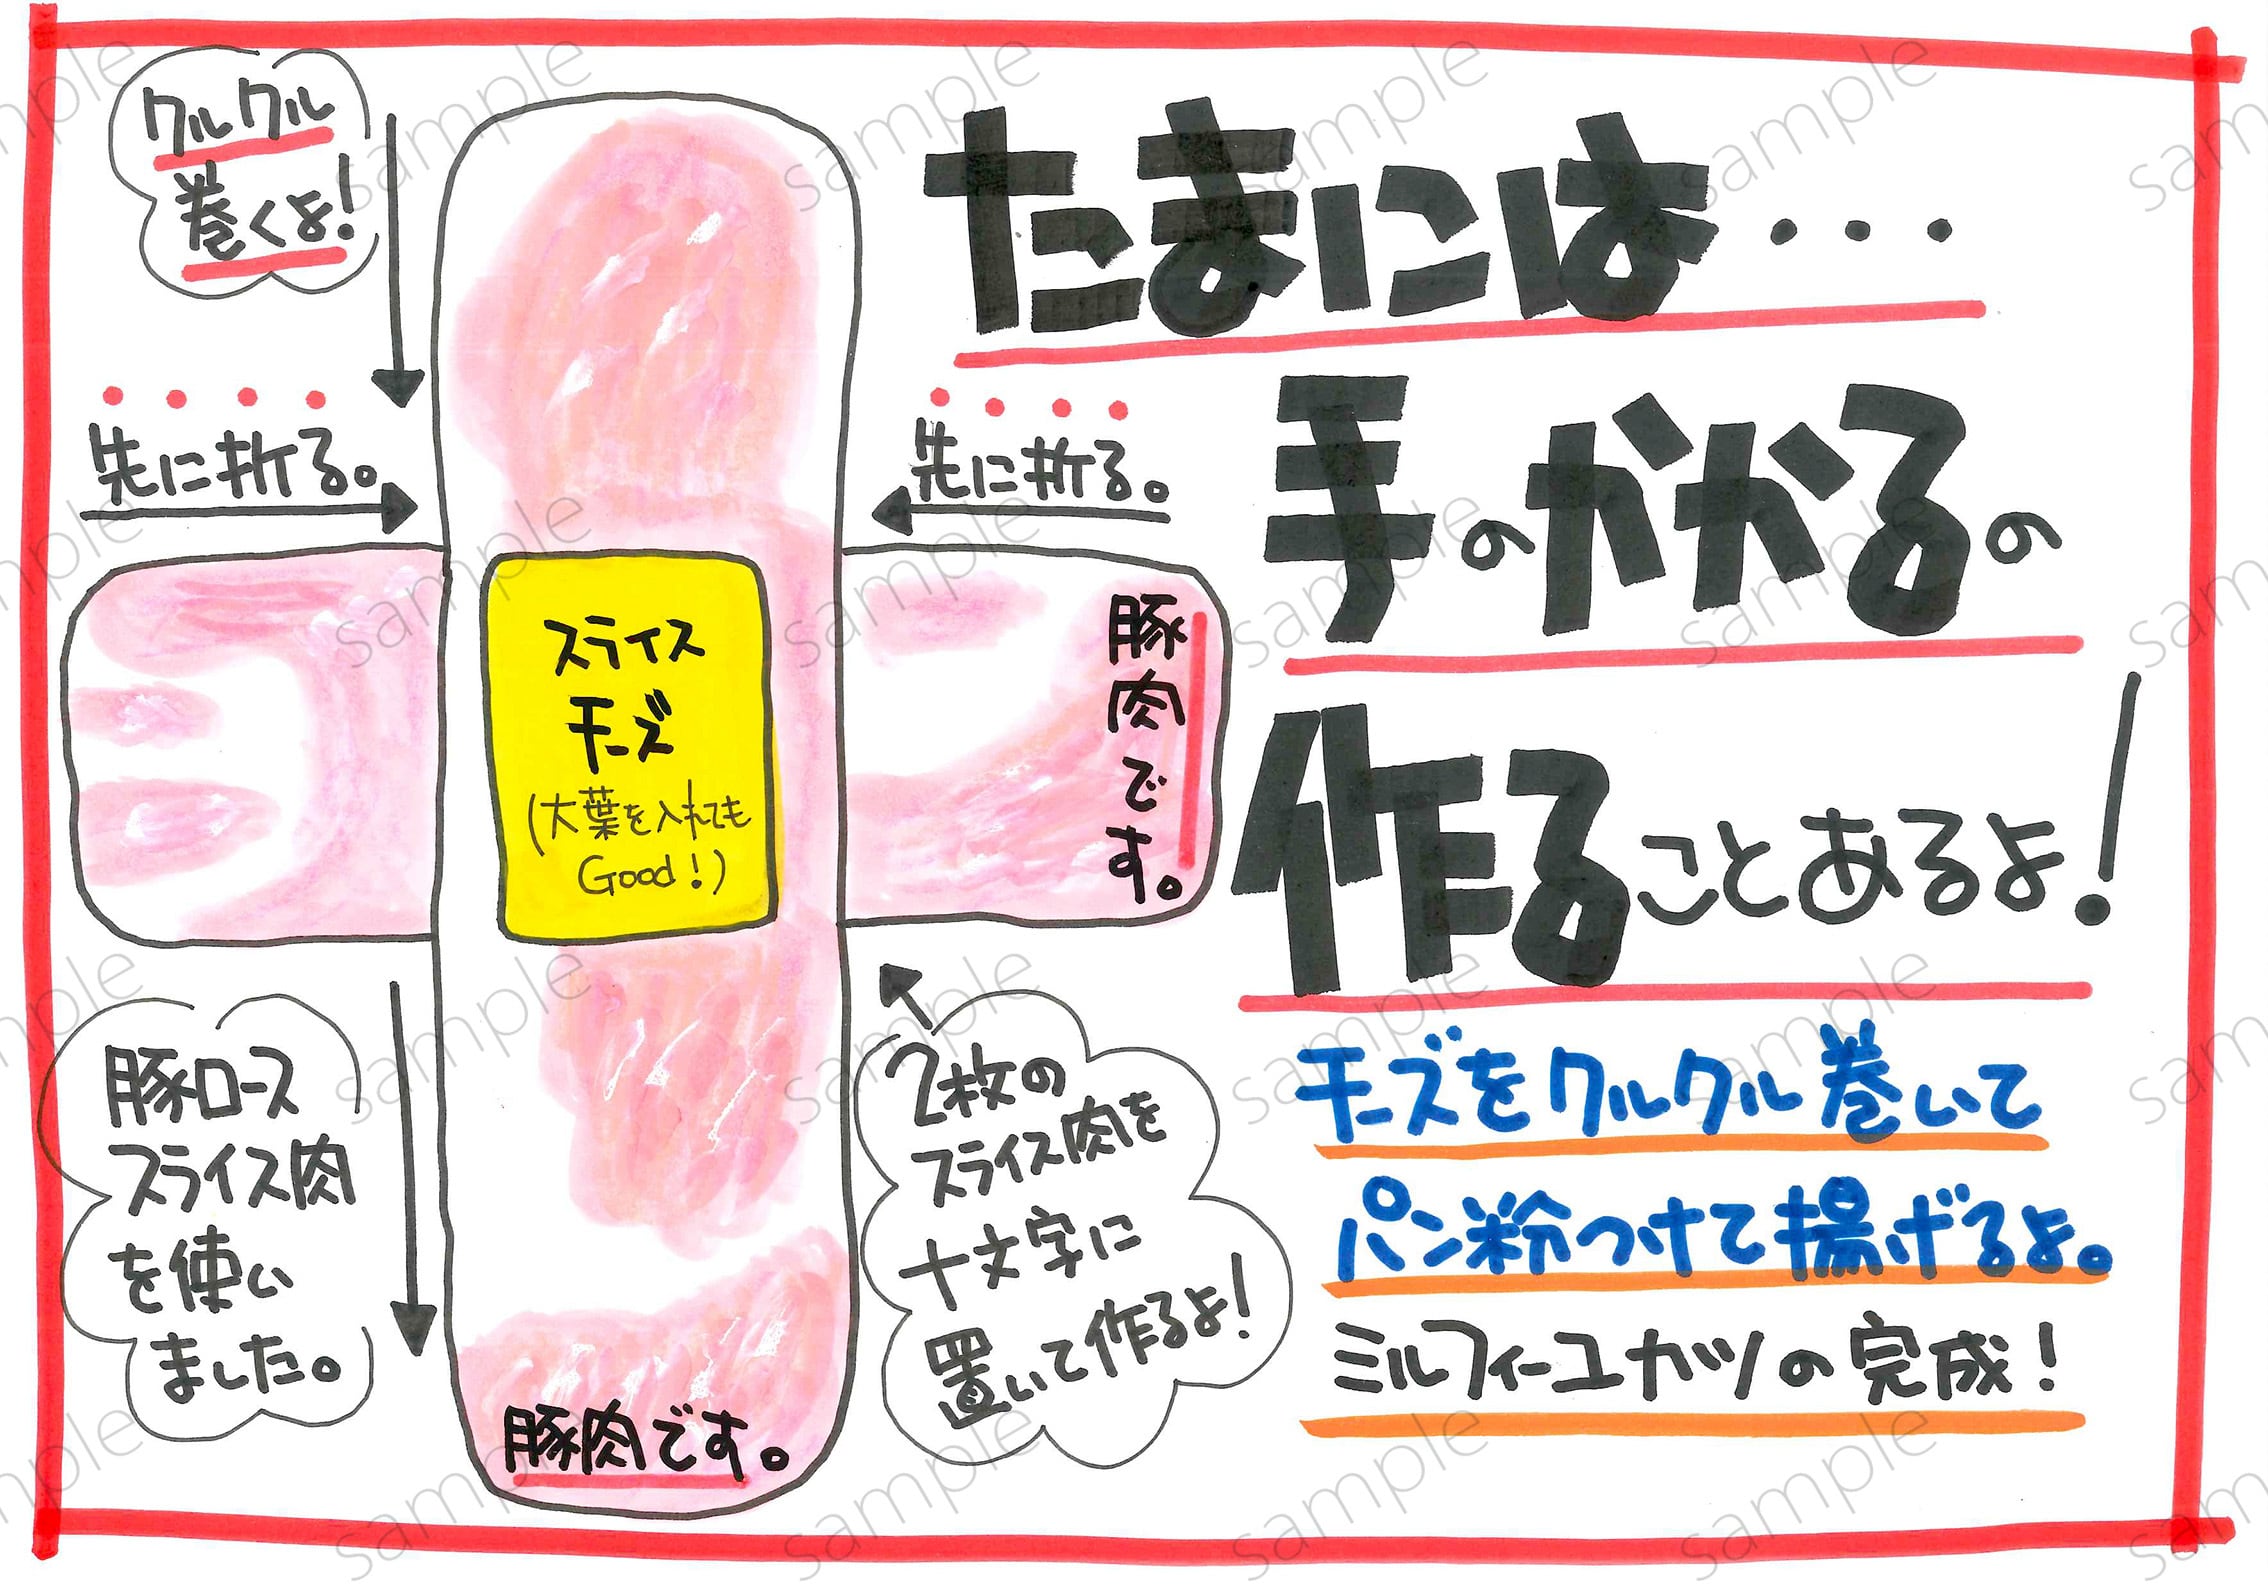 たまには・・・
手のかかるの
作ることあるよ!
クルクル
巻くよ!
先に折る。
先に折る。
スライス
チーズ
(大葉を入れても
Good!)
豚肉です。
豚肉です。
豚ロース
スライス肉
を使い
ました。
2枚の
スライス肉を
十文字に
置いて作るよ!
チーズをクルクル巻いて
パン粉つけて揚げるよ。
ミルフィーユカツの完成!
sample